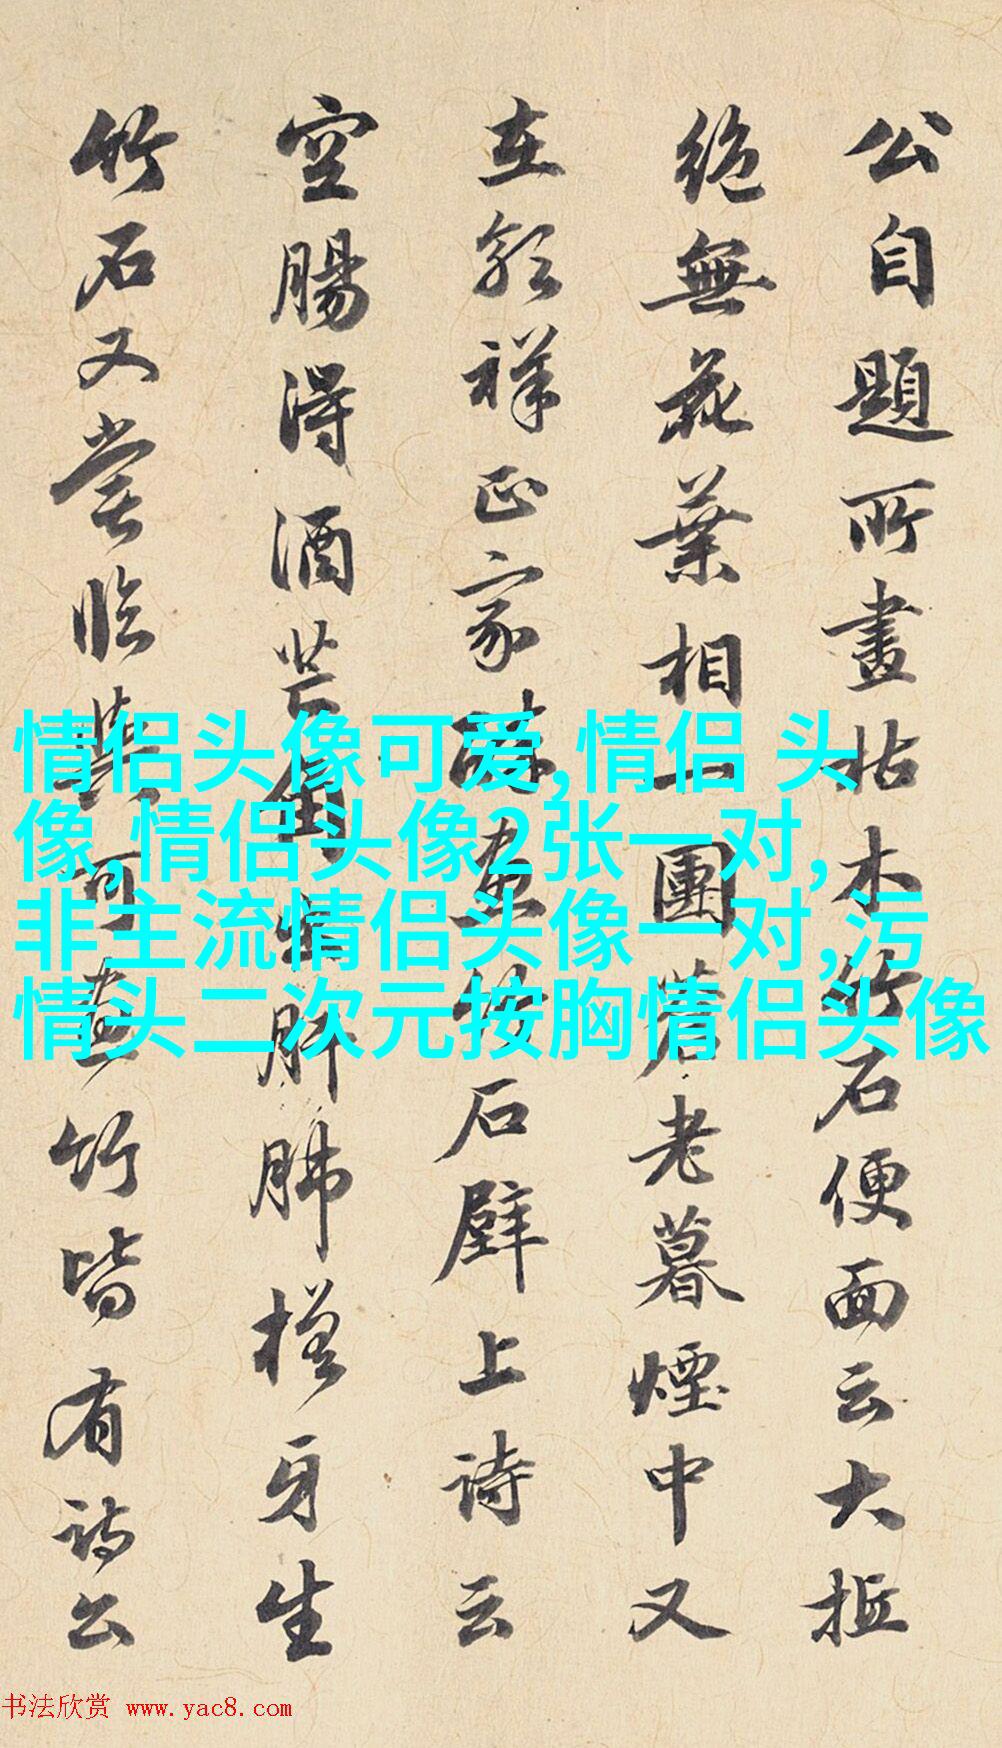 公自題所畫枯木竹石便面云大抵
絶無花葉相一團蒼老暮煙中又
在郭祥正家醉畫竹石壁上詩云
空腸得酒芒角出肝肺槎牙生
竹石又嘗臨與可畫竹皆有詩公
情侣头像可爱,情侣 头
像,情侣头像2张一对,
非主流情侣头像一对,污
情头二次元按胸情侣头像
书法欣赏 www.yac8.com